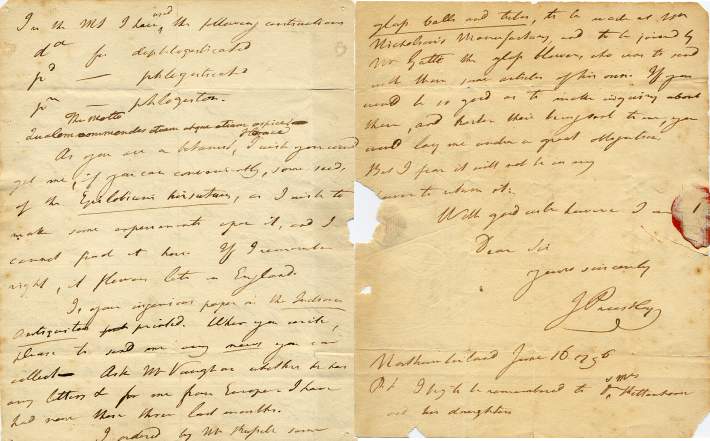 In the MS I have used the following contractions
dd for dephlogisticated
pd — phlogisticated
pn — phlogiston.
The motto
Horace
As you are a botanist, I wish you would
get me, if you can conveniently, some seeds
of the Epilobium hirsutum, as I wish to
make some experiments upon it, and I
cannot find it here. If I remember
right, it flowers late in England.
Is your ingenious paper on the Indian
Antiquities printed. When you write,
please to send me any news you can
collect. Ask Mr Vaughan whether he has
any letters &c for me from Europe. I have
had none these three last months.
I ordered by Mr Russell some
glass balls and tubes, to be made at Mr
Nicholson's Manufactory, and to be joined by
Mr the glass blower, who was to send
with them some articles of his own. If you
would be so good as to make inquiry about
them, and hasten their being sent to me, you
would lay me under a great obligation
But I fear it will not be in my
power to return it.
With good wishes however I am
Dear Sir
yours sincerely
J Priestley
Northumberland June 16 1796
P.S. I beg to be remembered to Mrs
and her daughters
1